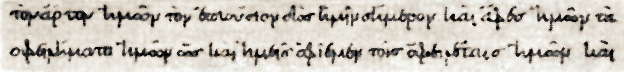 τὸν ἄρτον ἡμῶν τὸν ἐπιούσιον δὸς ἡμῖν σήμερον καὶ ἄφες ἡμῖν τὰ
ὀφειλήματα ἡμῶν ὡς καὶ ἡμεῖς ἀφίεμεν τοῖς ὀφειλέταις ἡμῶν καὶ